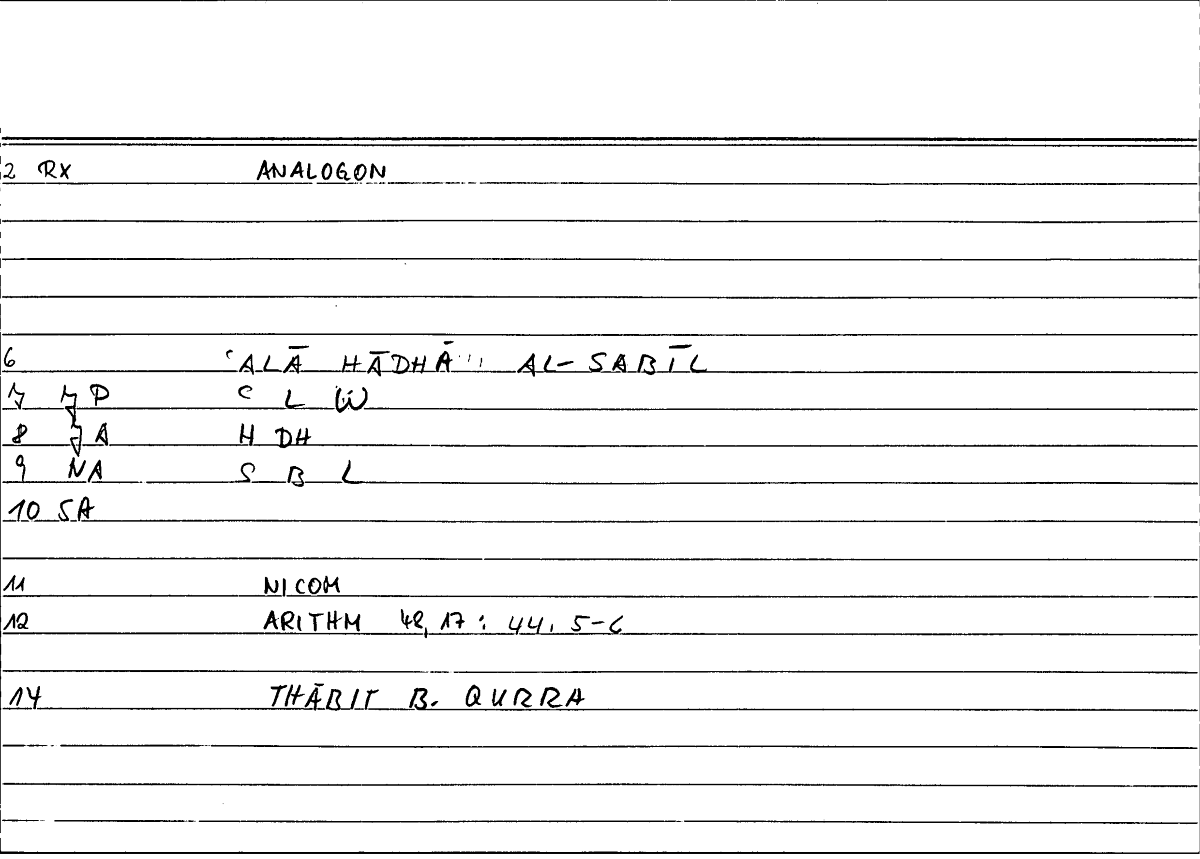 2 RX ANALOGON
6 ʿALĀ HĀDHĀ ... AL-SABĪL
7 P ʿ L W
8 A H DH
9 NA S B L
10 SA
11 NICOM
12 ARITHM 48, 17 : 44, 5-6
14 THĀBIT B. QURRA